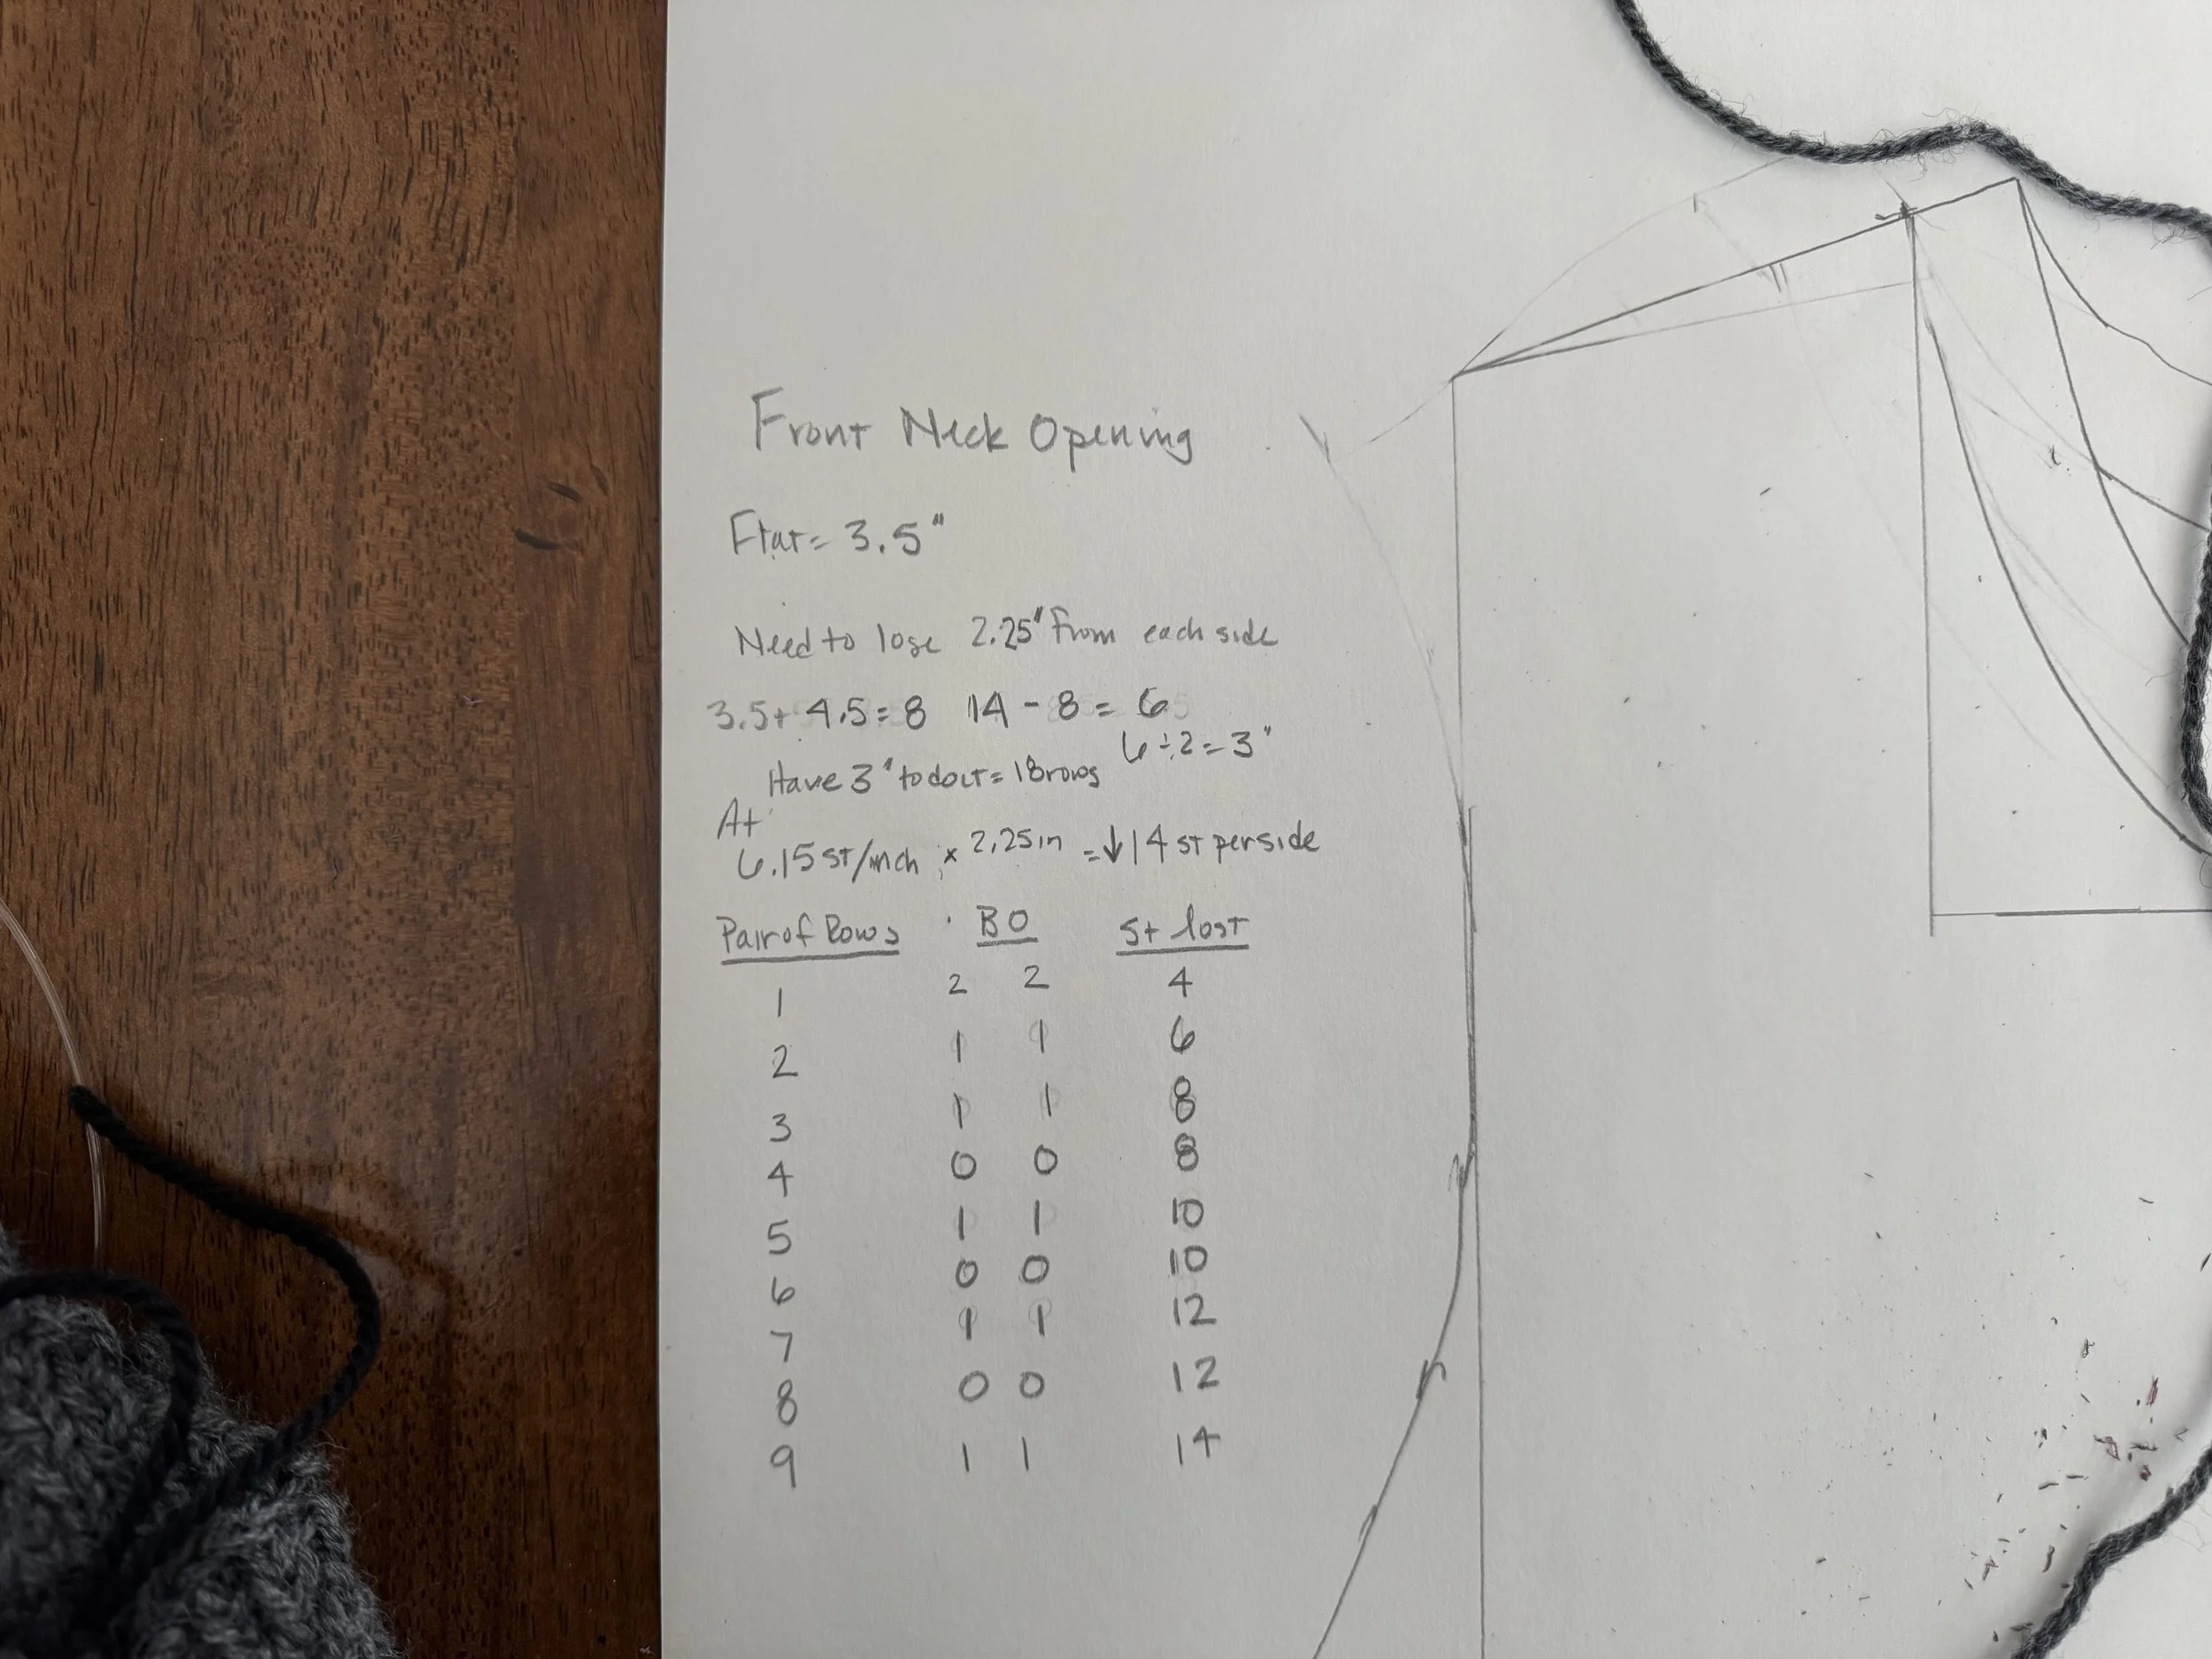 Front Neck Opening
Flat = 3.5"
Need to lose 2.25" from each side
3.5 + 4.5 = 8 14 - 8 = 6
6 ÷ 2 = 3"
Have 3" to do it = 18 rows
At
6.15 st/inch x 2.25in = ↓14 st per side
Pair of Rows BO St lost
1 2 2 4
2 1 1 6
3 1 1 8
4 0 0 8
5 1 1 10
6 0 0 10
7 1 1 12
8 0 0 12
9 1 1 14